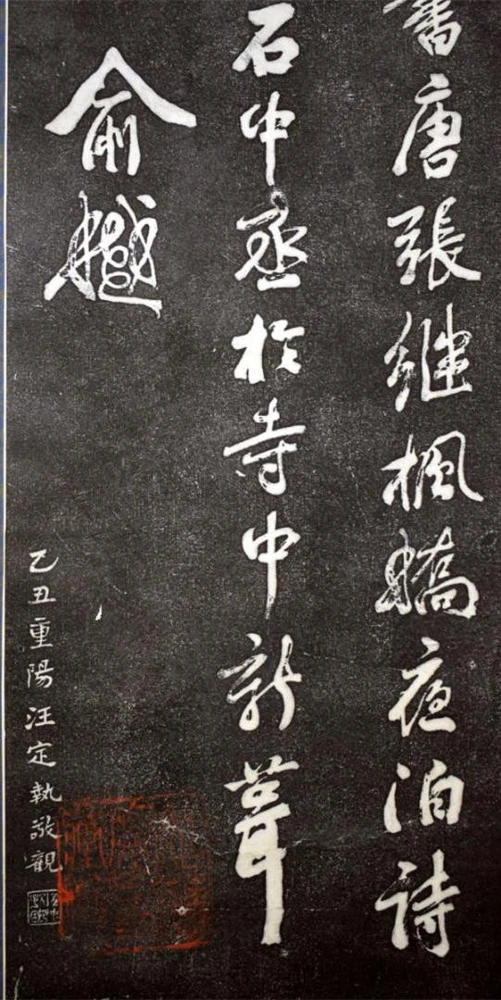 書唐張繼楓橋夜泊詩
石中丞於寺中新葺
俞樾
乙丑重陽汪定執敬觀